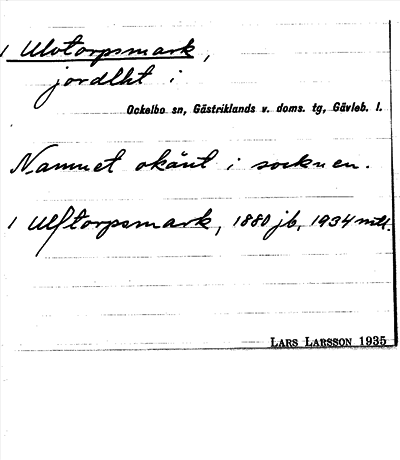 1 Ulvtorpsmark,
jordlht i
Ockelbo sn, Gästriklands v. doms. tg, Gävleb. l.
Namnet okänt i socknen.
1 Ulftorpsmark, 1880 jb, 1934 mtl.
LARS LARSSON 1935